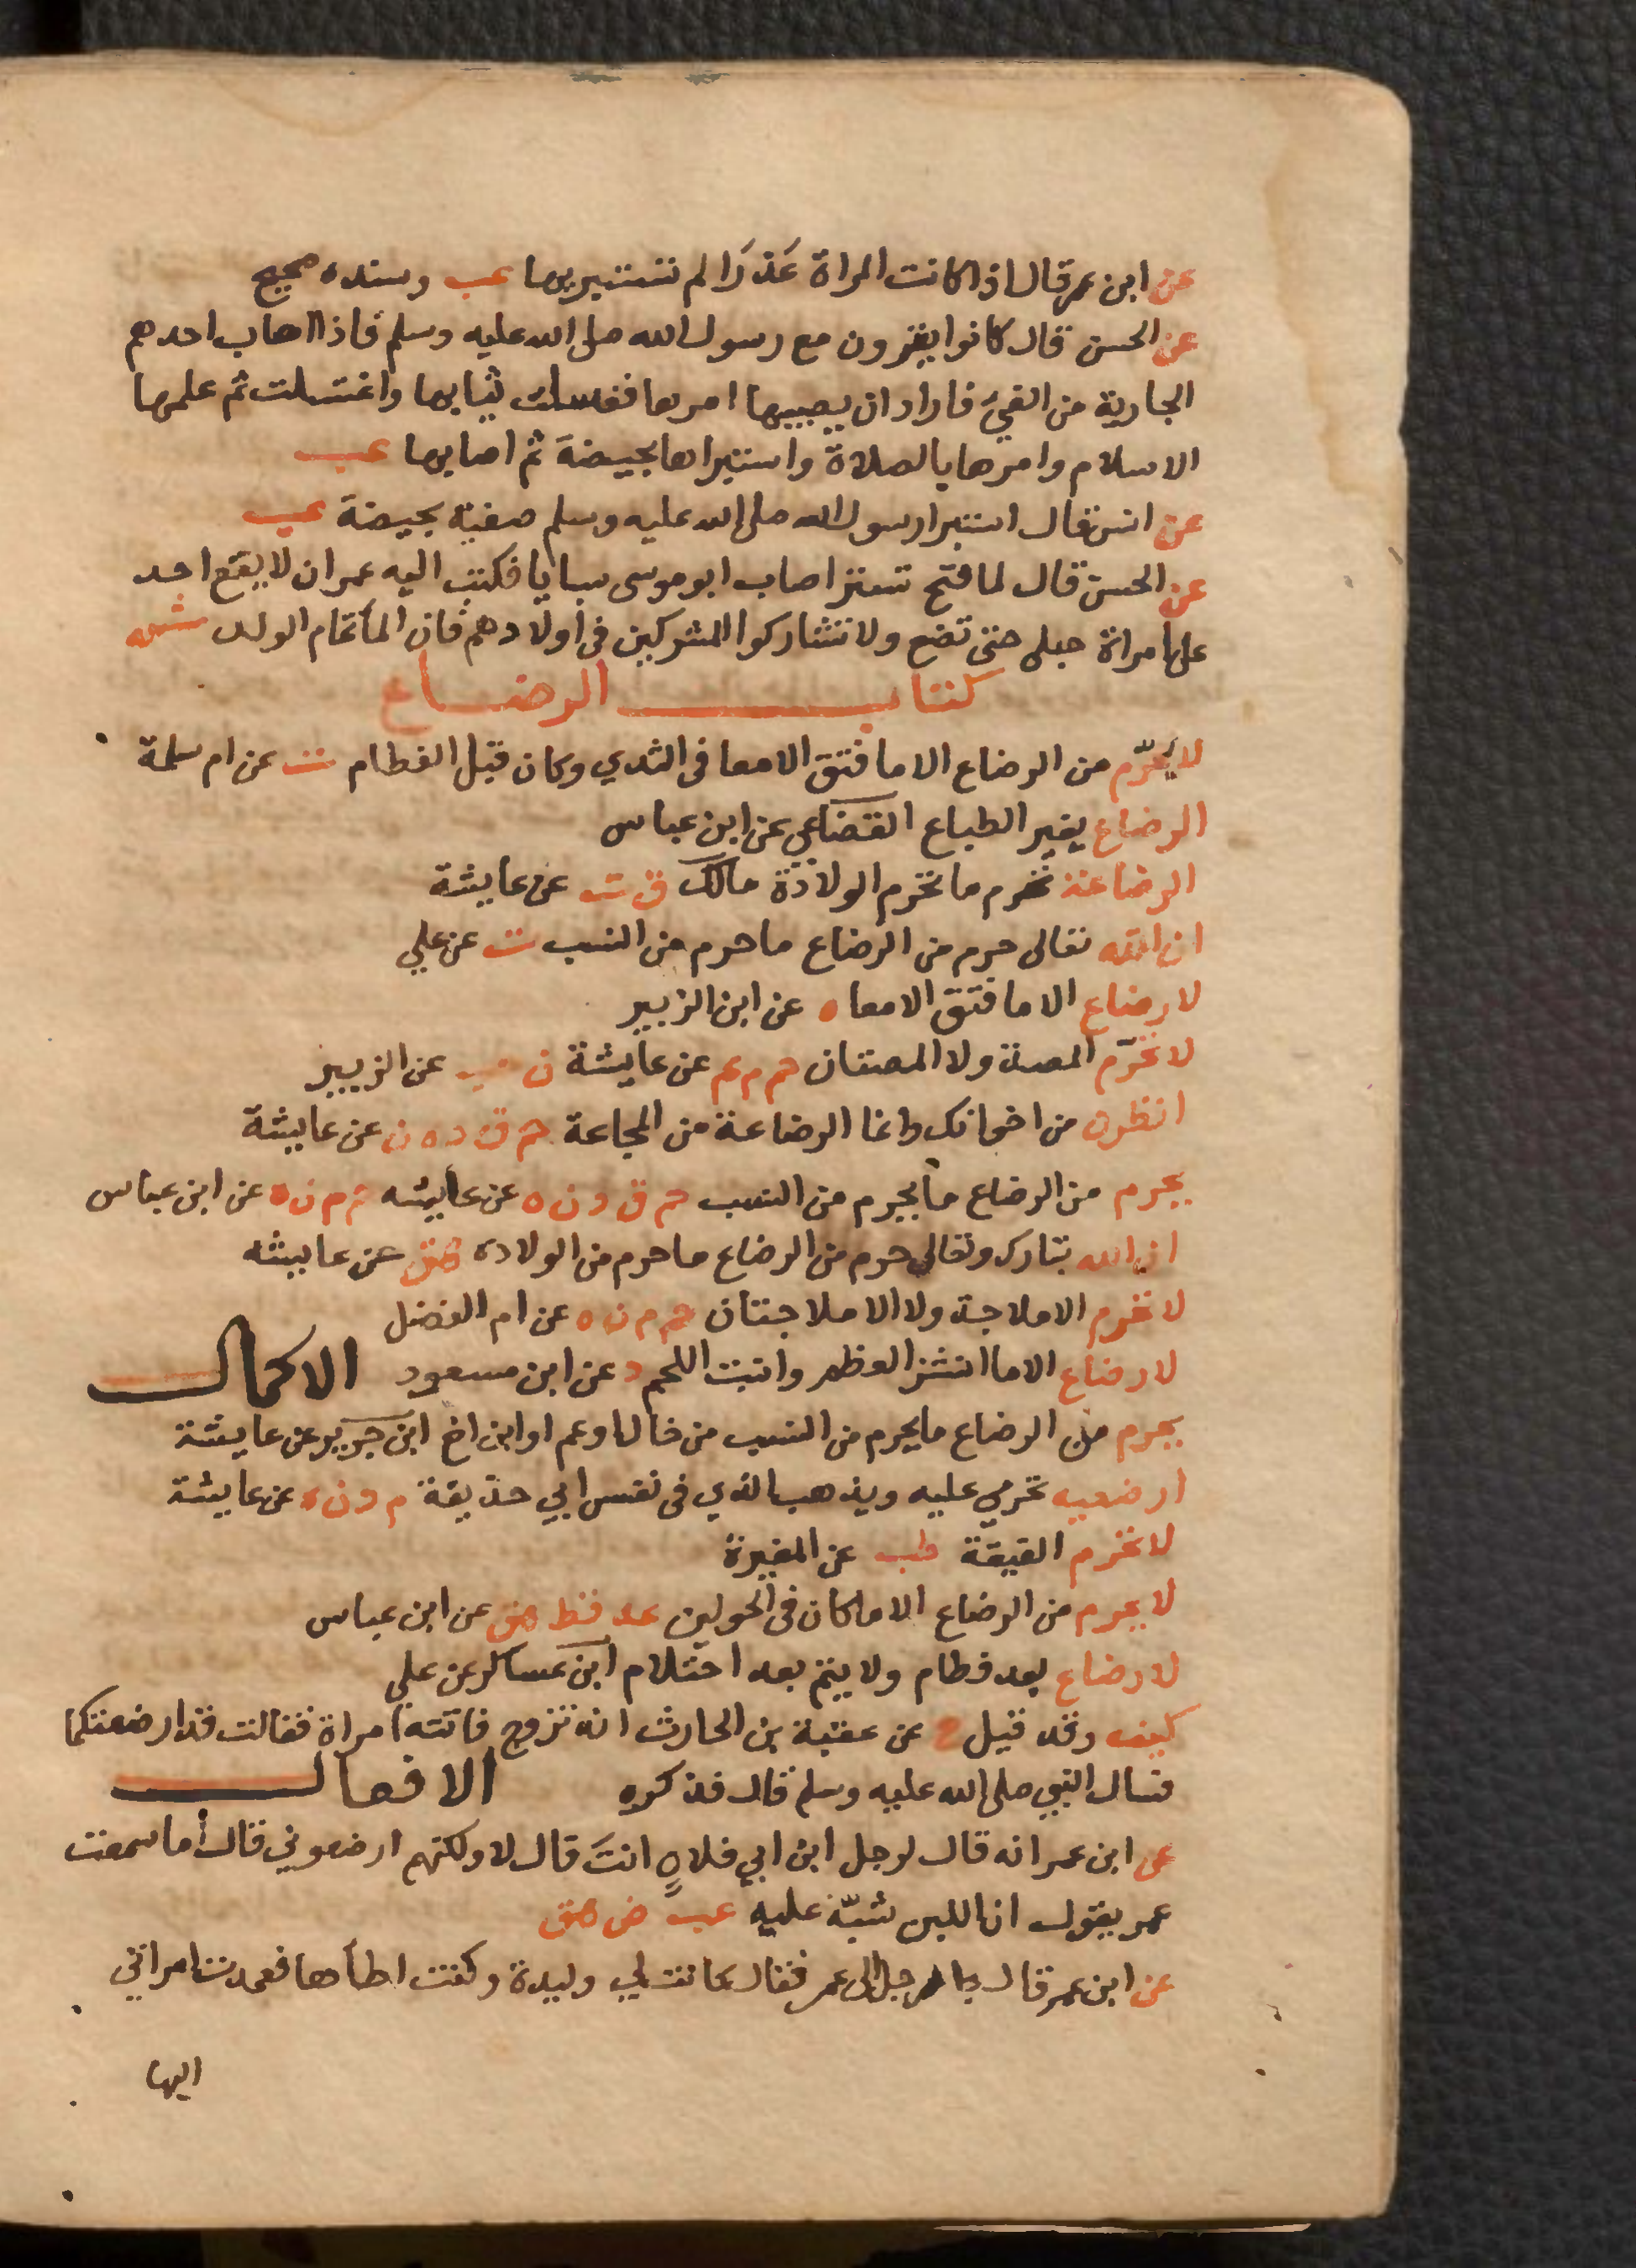 عن ابن عمر قال اذا كانت المراة عَذرَا لم تستبريها عب وسنده صحيح
عن الحسن قال كانوا يغزون مع رسول الله صلى الله عليه وسلم فاذا اصاب احدهم
الجارية من الفيء فاراد ان يصيبها امرها فغسلت ثيابها واغتسلت ثم علمها
الاسلام وامرها بالصلاة واستبراها بحيضة ثم اصابها عب
عن انس قال استبرا رسول الله صلى الله عليه وسلم صفية بحيضة عب
عن الحسن قال لما فتح تستر اصاب ابو موسى سبايا فكتب اليه عمر ان لا يقع احد
على امراة حبلى حتى تضع ولا تشاركوا المشركين في اولادهم فان الماء تمام الولد ش
كتاب الرضاع
لا يُحرّم من الرضاع الا ما فتق الامعا في الثدي وكان قبل الفطام ت عن ام سلمة
الرضاع يغير الطباع القضاعي عن ابن عباس
الرضاعة تحرم ما تحرم الولادة مالك ق ت عن عايشة
ان الله تعالى حرم من الرضاع ما حرم من النسب ت عن علي
لا رضاع الا ما فتق الامعا ه عن ابن الزبير
لا تحرّم المصة ولا المصتان حم م عم عن عايشة ن حب عن الزبير
انظرن من اخوانكن فانما الرضاعة من المجاعة حم ق د ه ن عن عايشة
يحرم من الرضاع ما يحرم من النسب حم ق د ن ه عن عايشه حم م ن ه عن ابن عباس
ان الله تبارك وتعالى حرم من الرضاع ما حرم من الولاده هق عن عايشه
لا تحرم الاملاجة ولا الاملاجتان حم م ن ه عن ام الفضل
لا رضاع الا ما انشز العظم وانبت اللحم د عن ابن مسعود الاكمال
يحرم من الرضاع ما يحرم من النسب من خال او عم او ابن اخ ابن جرير عن عايشة
ارضعيه تحرمي عليه ويذهب الذي في نفس ابي حذيفة م د ن ه عن عايشة
لا تحرم القيقة طب عن المغيرة
لا يحرم من الرضاع الا ما كان في الحولين عد قط هق عن ابن عباس
لا رضاع بعد فطام ولا يتم بعد احتلام ابن عساكر عن علي
كيف وقد قيل خ عن عقبة بن الحارث انه تزوج فاتته امراة فقالت قد ارضعتكما
فسال النبي صلى الله عليه وسلم قال فذكره الافعال
عن ابن عمر انه قال لرجل ابن ابي فلان انتَ قال لا ولكنهم ارضعوني قال أما سمعت
عمر يقول ان اللبن تشبّه عليه عب ض هق
عن ابن عمر قال جا رجل الى عمر فقال كانت لي وليدة وكنت اطأها فعمدت امراتي
اليها